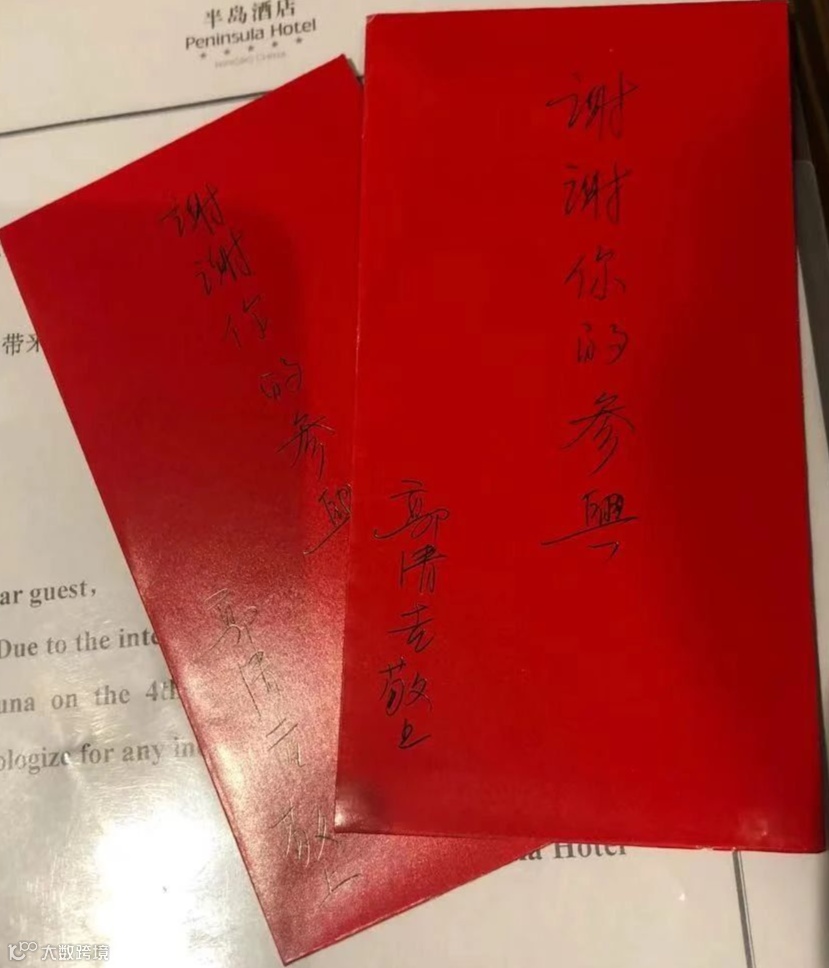 半岛酒店
Peninsula Hotel
NINGBO CHINA
谢谢你的参與
郭清吉敬上
谢谢你的参與
郭清吉敬上
带来
ar guest,
Due to the inte
una on the 4th
ologize for any in
la Hotel
大数跨境